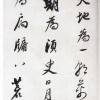 天地為一朝萬
期為須臾日月
為扃牖八荒